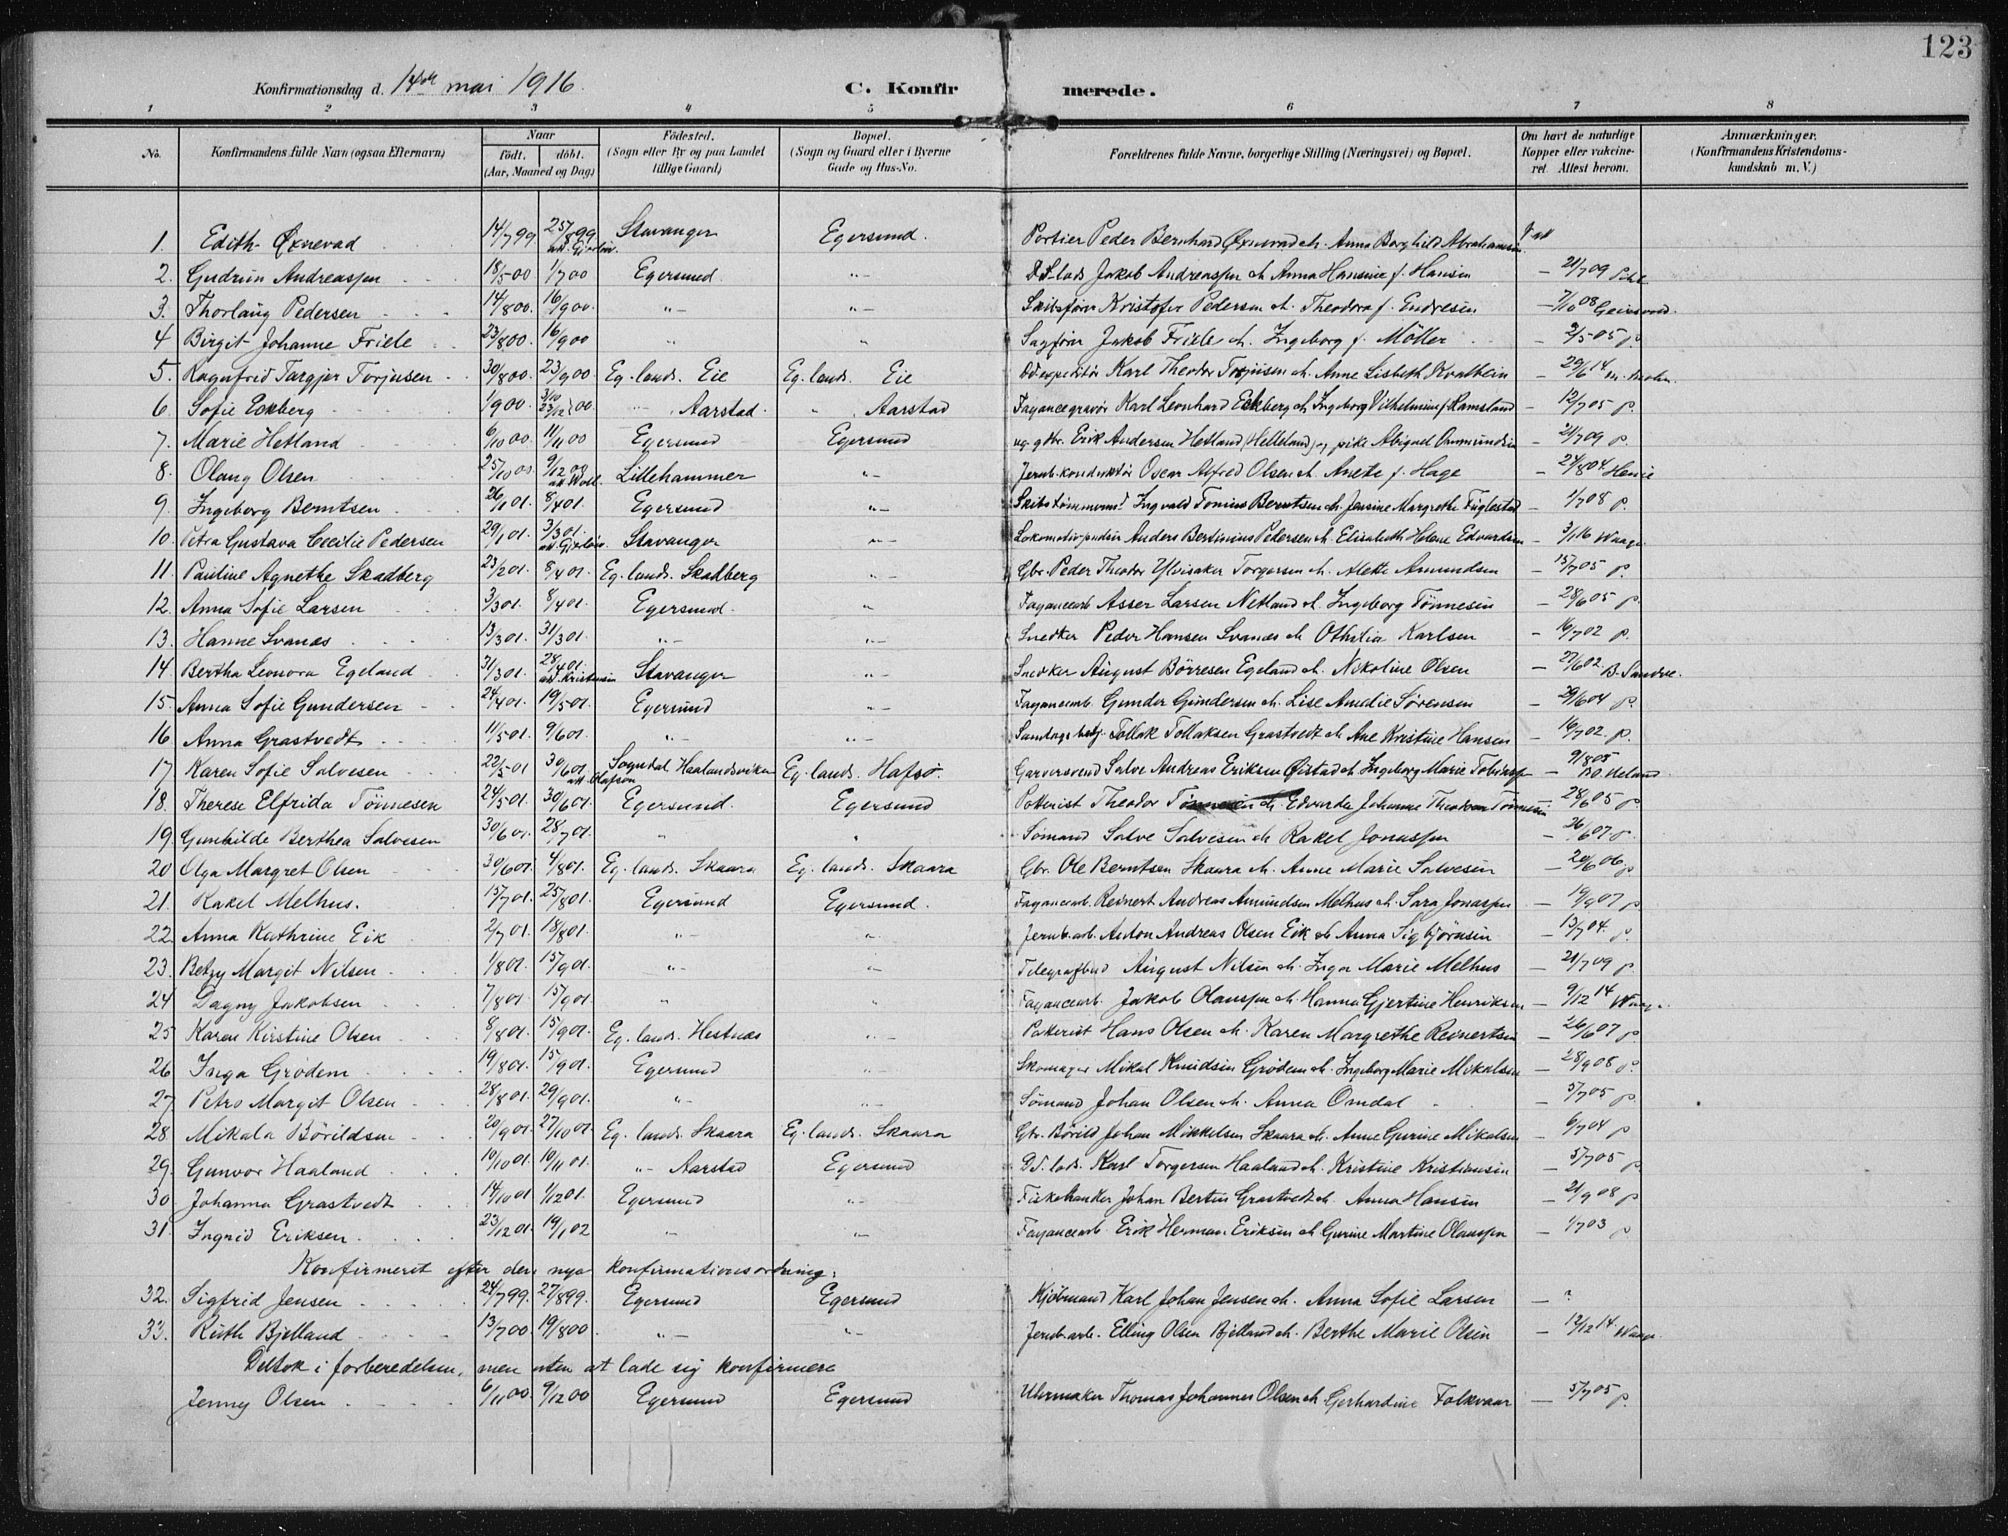 123
Konfirmationsdag d. 14de mai 1916. C. Konfirmerede.
1 2 3 4 5 6 7 8
No. Konfirmandens fulde Navn (ogsaa Efternavn) Naar födt. döbt. (Aar, Maaned og Dag) Födested. (Sogn eller By og paa Landet tillige Gaard) Bopæl. (Sogn og Gaard eller i Byerne Gade og Hus-No. Forældrenes fulde Navne, borgerlige Stilling (Næringsvei) og Bopæl. Om havt de naturlige Kopper eller vakcineret. Attest herom. Anmærkninger. (Konfirmandens Kristendomskundskab m. V.)
1. Edith Øxnevad 14/7 99 25/8 99 Stavanger Egersund. Portier Peder Bernhard Øxnevad &. Anna Borghild Abrahamsen
2. Gudrun Andreassen 18/5 00 1/7 00 Egersund. "- Jakob Andreassen & Anna Hansine f. Hansen — 21/7 09
3. Thorlaug Pedersen 14/8 00. 16/9 00. "- "- Skibsfører Kristofer Pedersen &. Theodora f. Endresen — 7/10 08
4 Birgit Johanne Friele 23/8 00. 16/9 00 " " Sagfører Jakob Friele &. Ingeborg f. Möller — 2/5 05 p.
5. Ragnfrid Targjer Torjusen 30/8 00. 23/9 00. Eg. lands. Eie Eg. lands. Eie Karl Theodor Torjusen &. Anne Lisbeth Kvalbein — 29/6 14
6. Sofie Eckberg 1/9 00. "- Aarstad. " Aarstad Fayancegravør Karl Leonhard Eckberg & Ingeborg Vilhelmine f. Ramsland — 12/7 05 p.
7. Marie Hetland 6/10 00. 11/11 00 Egersund Egersund ug. gbr. Erik Andersen Hetland (Helleland) og pike Abigael Ommundsen — 21/7 09 p.
8. Olaug Olsen 25/10 00. 9/12 00 Lillehammer "- Jernb.konduktör Oscar Alfred Olsen &. Anete f. Hage — 24/8 04.
9. Ingeborg Berntsen 26/1 01. 8/4 01 Egersund "- Skibstømmermd. Ingvald Tonius Berntsen &. Jensine Margrethe Fuglestad — 1/7 08 p.
10. Petra Gustava Cecilie Pedersen 29/1 01. 3/3 01. Stavanger "- Anders Bertinius Pedersen &. Elisabeth Helene Edvardsen — 3/1 16 Waage
11. Pauline Agnethe Skadberg 23/2 01. 8/4 01. Eg. lands. Skadberg "- Gbr. Peder Theodor Ylvisaker Torgersen &. Alette Amundsen — 15/7 05 p.
12. Anna Sofie Larsen 3/3 01. 8/4 01. Egersund. " Fayancearb. Asser Larsen Netland & Ingeborg Tönnesen — 28/6 05 p.
13. Hanne Svanæs 13/3 01. 31/3 01. "- "- Snedker Peder Hansen Svanæs &. Othilia Karlsen — 16/7 02 p.
14 Bertha Leonora Egeland 31/3 01. 28/4 01. att. Kristensen Stavanger "- Snedker August Börresen Egeland &. Nikoline Olsen — 27/6 02 B. Sandve.
15. Anna Sofie Gundersen 24/4 01. 19/5 01. Egersund "- Fayancearb. Gunder Gundersen &. Lise Amelie Sørensen — 29/6 04 p.
16 Anna Grastvedt 11/5 01 9/6 01. "- "- Tollak Tollaksen Grastvedt &. Ane Kristine Hansen — 16/7 02. p.
17. Karen Sofie Salvesen 22/5 01 30/6 01 att. Olafson Sogndal Haalandsviken Eg. lands. Hafsø. Garversvend Salve Andreas Eriksen Øistad &. Ingeborg Marie Tobiassen — 9/8 05
18. Therese Elfrida Tönnesen 24/5 01. 30/6 01. Egersund. Egersund Potterist Theodor Tönnesen &. Edvarda Johanne Theodora Tönnesen — 28/6 05 p
19. Gunhilde Berthea Salvesen 30/6 01. 28/7 01. " " Sømand Salve Salvesen &. Rakel Jonassen — 26/6 07 p.
20 Olga Margret Olsen 30/6 01. 4/8 01. Eg. lands. Skaara Eg. lands. Skaara Gbr. Ole Berntsen Skaara &. Anne Marie Salvesen — 20/6 06 p
21. Rakel Melhus. 15/7 01. 25/8 01. Egersund Egersund. Fayancearb. Reinert Andreas Amundsen Melhus &. Sara Jonassen — 19/9 07 p
22. Anna Kathrine Eik 2/7 01. 18/8 01. "- " Jernb.arb. Anton Andreas Olsen Eik & Anna Sigbjørnsen — 13/7 04. p.
23. Betzy Margit Nilsen 1/8 01. 15/9 01. "- "- Telegrafbud August Nilsen &. Inga Marie Melhus — 21/7 09 p.
24 Dagny Jakobsen 7/8 01 15/9 01. " " Fayancearb. Jakob Olaussen &. Hanna Gjertine Henriksen — 9/12 14 Waage
25 Karen Kirstine Olsen 8/8 01. 15/9 01. Eg. lands. Hestnæs "- Pakerist Hans Olsen &. Karen Margrethe Reinertsen — 26/6 07 p
26 Inga Grødem 19/8 01. 15/9 01. Egersund "- Skomager Mikal Knudsen Grødem &. Ingeborg Marie Mikalsen — 28/9 08 p.
27 Petra Margit Olsen 28/8 01 29/9 01. "- "- Sømand Johan Olsen &. Anna Omdal — 5/7 05 p.
28. Mikala Börildsen 20/9 01. 27/10 01. Eg. lands. Skaara Eg. lands. Skaara Gbr. Börild Johan Mikkelsen Skaara &. Anne Gurine Mikalsen — 6/7 04 p
29. Gunvor Haaland 10/10 01. 10/11 01. "- Aarstad Egersund Karl Torgersen Haaland &. Kristine Kristiansen — 5/7 05 p.
30 Johanna Grastvedt 14/10 01 1/12 01. Egersund "- Fiskehandler Johan Bertin Grastvedt &. Anna Hansen — 21/9 08 p
31. Ingrid Eriksen 23/12 01. 19/1 02 " "- Fayancearb. Erik Herman Eriksen & Gurine Martine Olaussen — 1/7 03 p
Konfirmeret efter den nye konfirmationsordning:
32. Sigfrid Jensen 24/7 99. 27/8 99. Egersund Egersund Kjøbmand Karl Johan Jensen &. Anna Sofie Larsen — ?
33. Ruth Bjelland 13/7 00 19/8 00. "- "- Jernb.arb. Elling Olsen Bjelland &. Berthe Marie Olsen — 12/12 14 Waage
Deltok i forberedelsen, men uten at lade sig konfirmere
Jenny Olsen 6/11 00. 9/12 00 Egersund Egersund Uhrmaker Thomas Johannes Olsen & Gerhardine Folkvaar — 5/7 05 p.